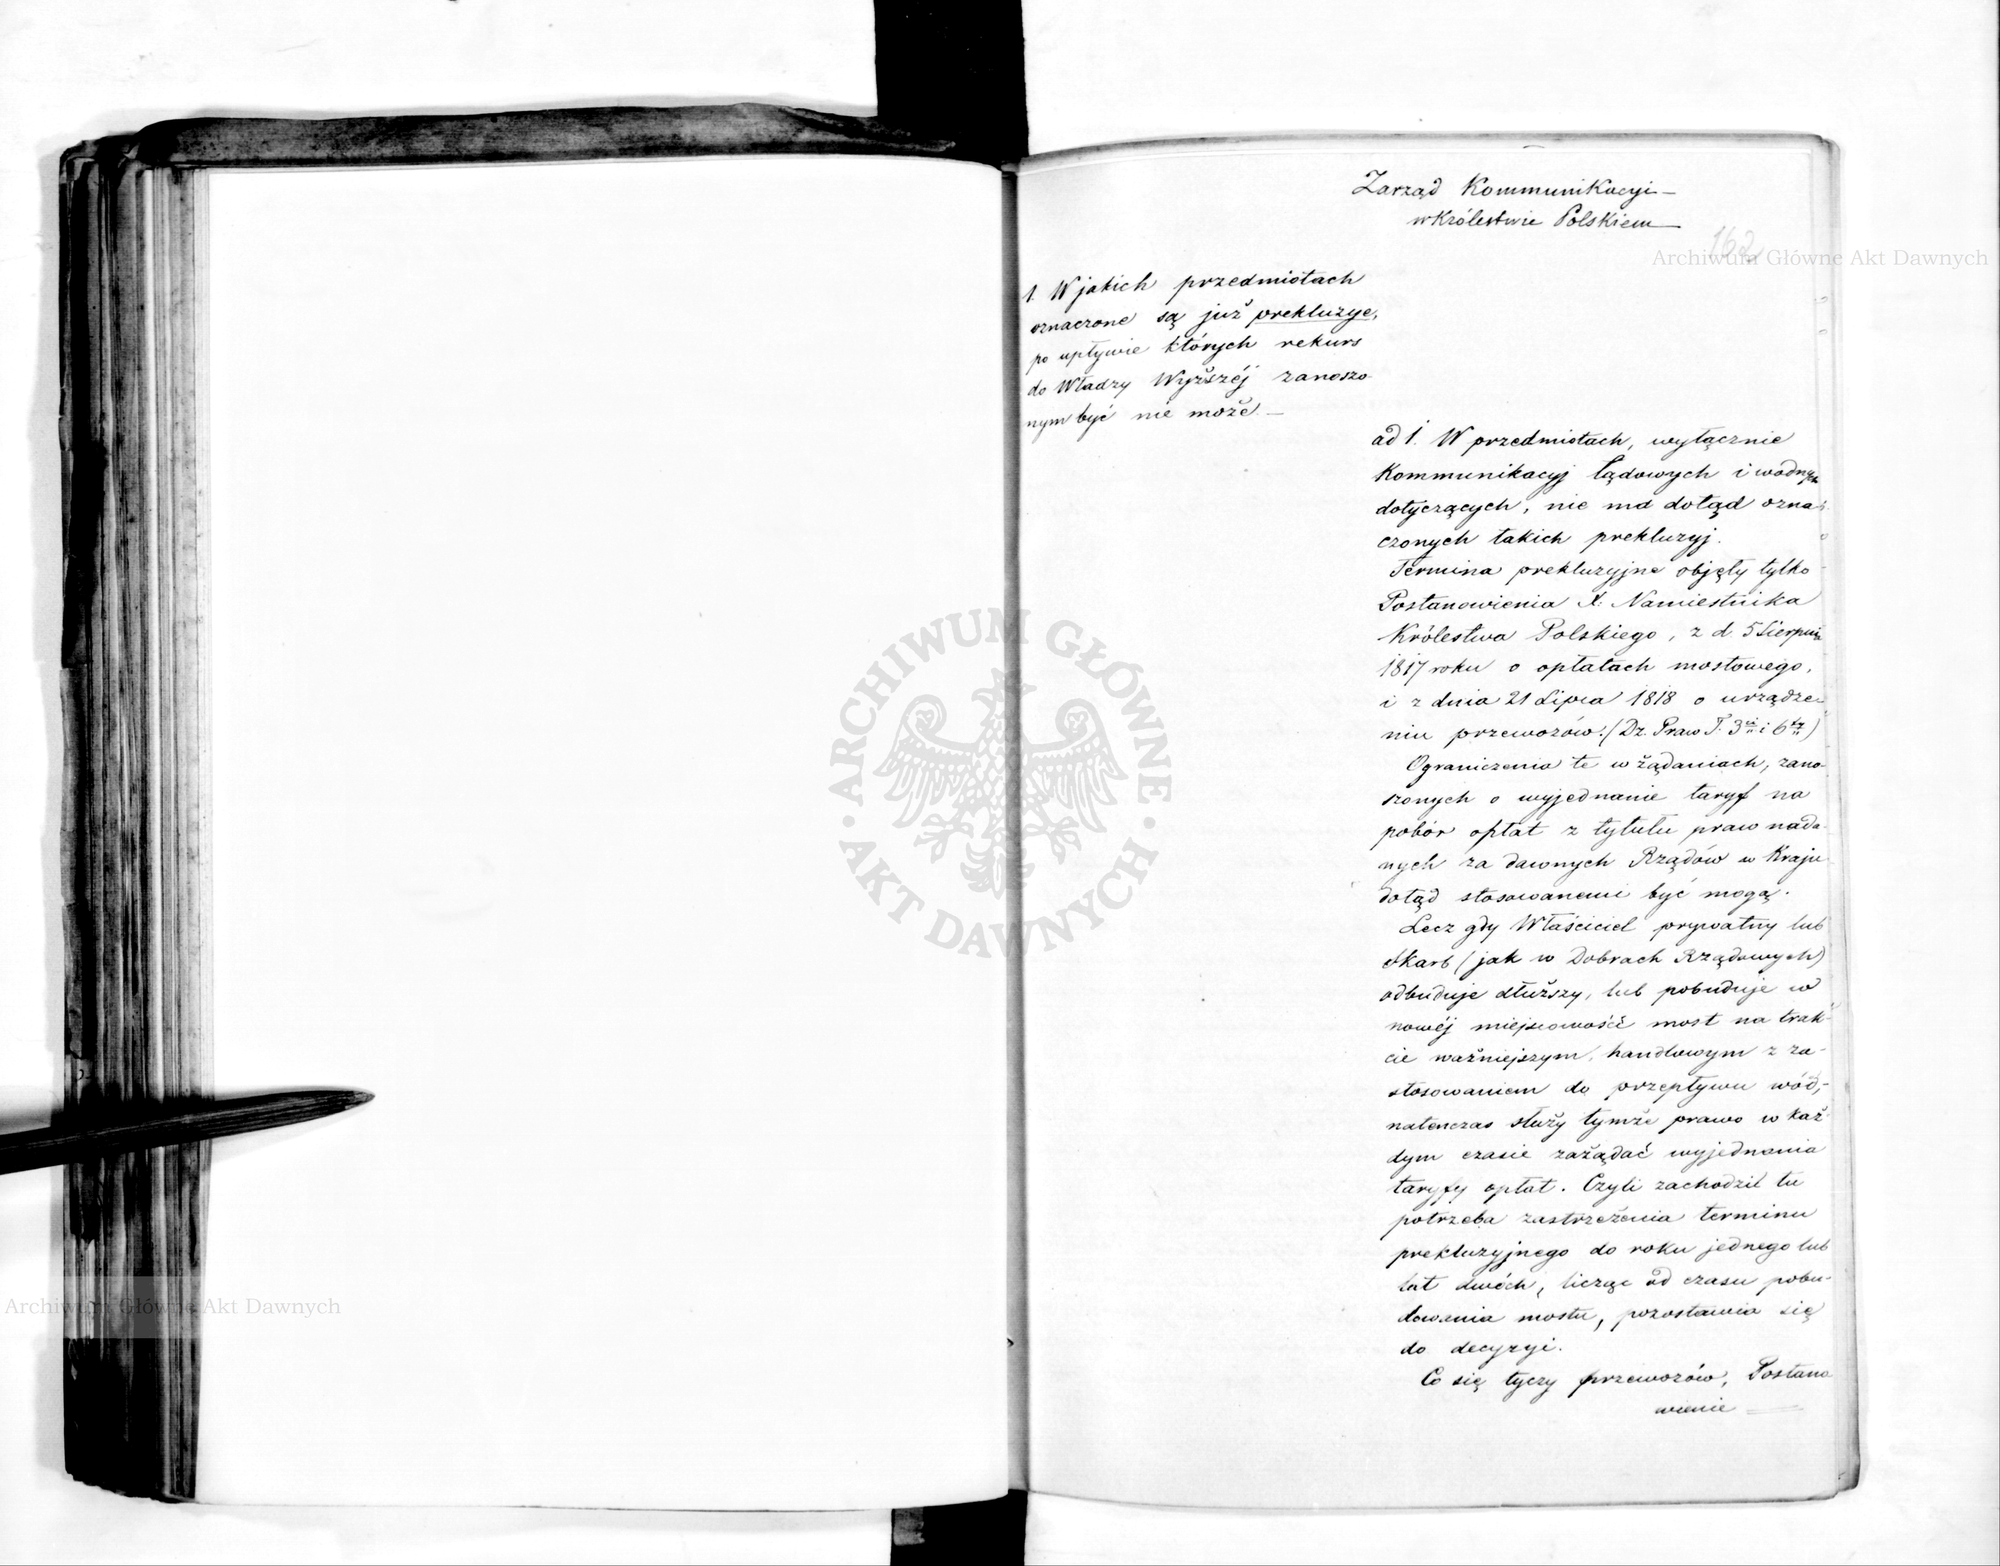 Zarząd Kommunikacyi —
w Królestwie Polskiem —
162
Archiwum Główne Akt Dawnych
1. W jakich przedmiotach
oznaczone są już prekluzye,
po upływie których rekurs
do Władzy Wyższéj zanoszo
nym być nie może. —
ad 1. W przedmiotach, wyłącznie
Kommunikacyj lądowych i wodnych
dotyczących, nie ma dotąd ozna-
czonych takich prekluzyj.
Termina prekluzyjne objęły tylko
Postanowienia X: Namiestnika
Królestwa Polskiego, z d. 5 Sierpnia
1817 roku o opłatach mostowego,
i z dnia 21 Lipca 1818 o urządze-
niu przewozów. (Dz. Praw T. 3ci i 6ty)
Ograniczenia te w żądaniach, zano-
szonych o wyjednanie taryf na
pobór opłat z tytułu praw nada-
nych za dawnych Rządów w Kraju
dotąd stosowanemi być mogą.
Lecz gdy Właściciel prywatny lub
Skarb (jak w Dobrach Rządowych)
odbuduje dłuższy, lub pobuduje w
nowéj miejscowości most na trak-
cie ważniejszym, handlowym z za-
stosowaniem do przepływu wód,-
natenczas służy tymże prawo w każ-
dym czasie zażądać wyjednania
taryfy opłat. Czyli zachodzić tu
potrzeba zastrzeżenia terminu
prekluzyjnego do roku jednego lub
lat dwóch, licząc od czasu pobu-
dowania mostu, pozostawia się
do decyzyi.
Co się tyczy przewozów, Postano
wienie —
ARCHIWUM GŁÓWNE
AKT DAWNYCH
Archiwum Główne Akt Dawnych